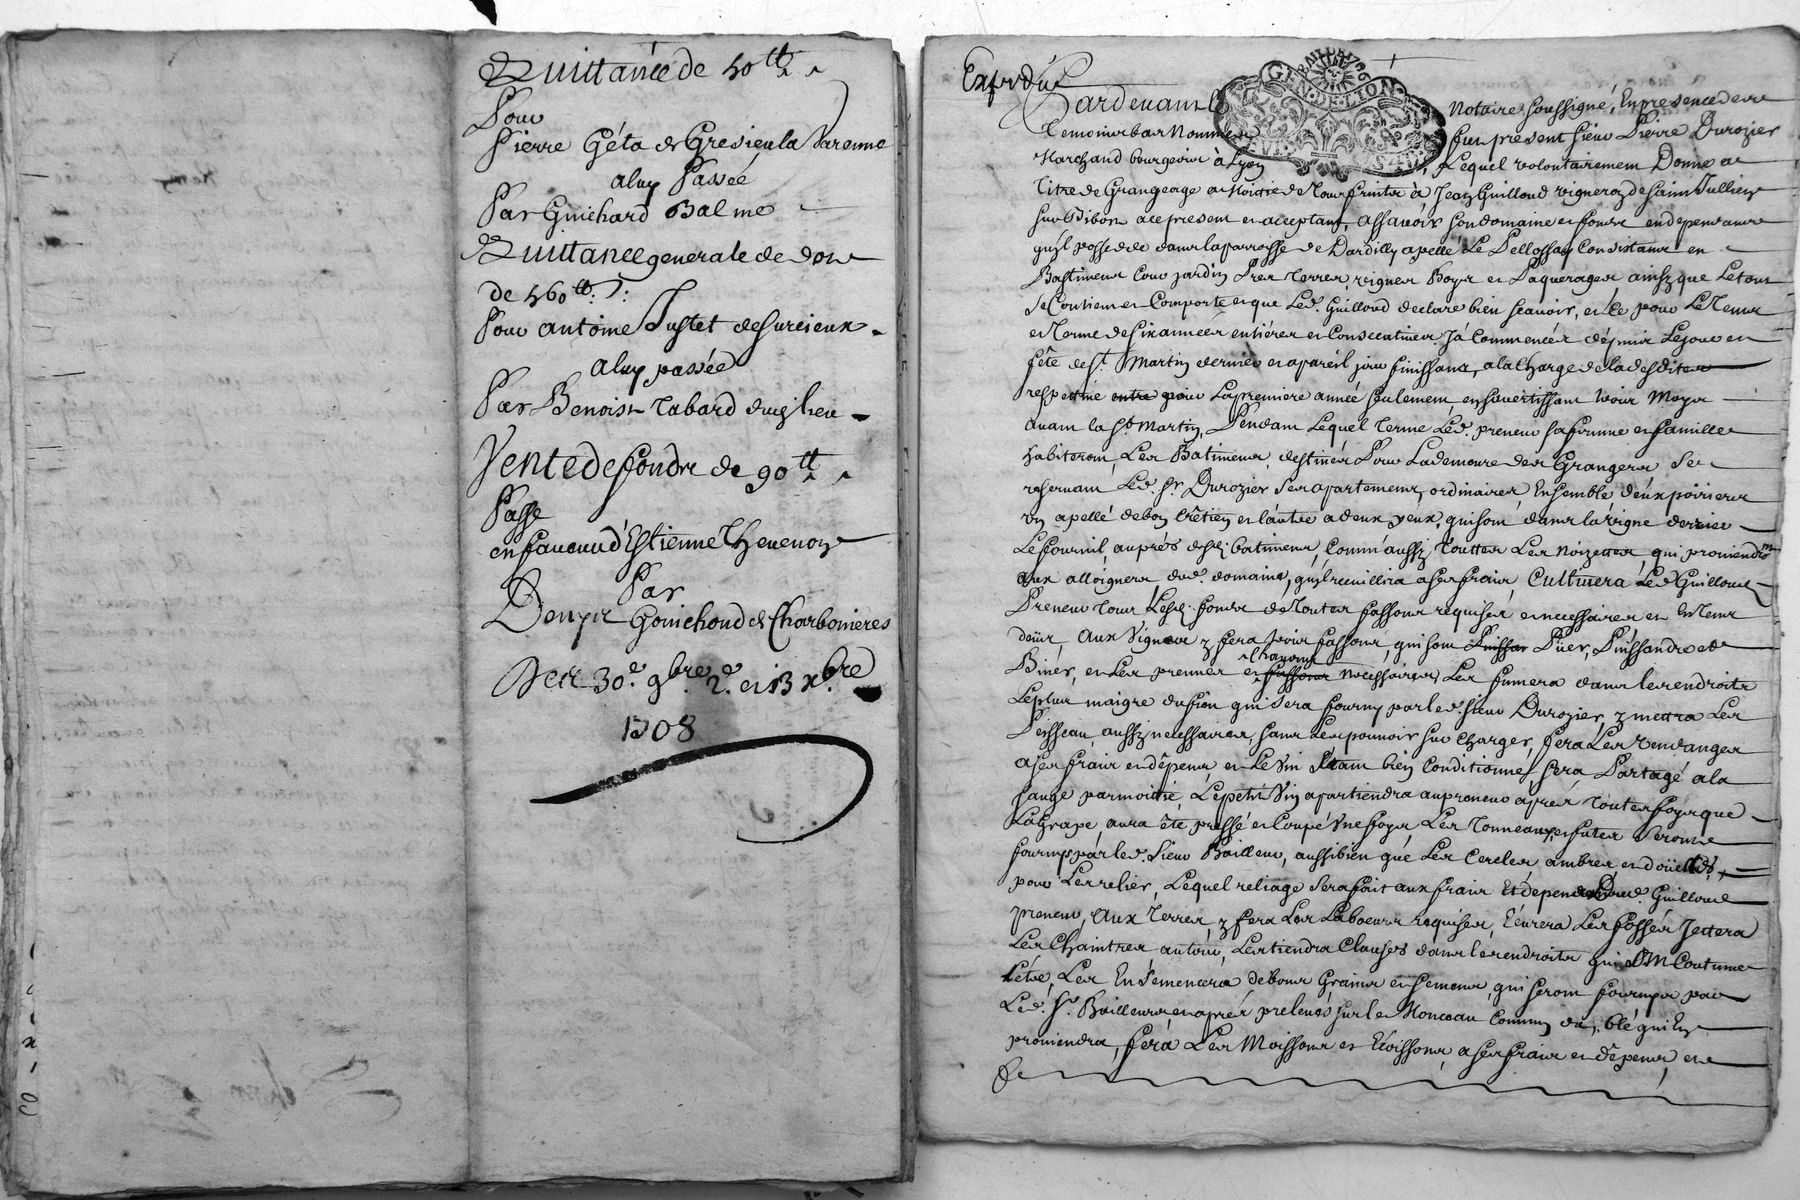 Quittance de 40tt
Pour
Pierre Géta de Gresieu la Varenne
a luy Passée
Par Guichard Balme
Quittance generale de dote
de 460tt
Pour antoine Justet de Surcieux
a luy passée
Par Benoist Tabard dudt lieu
Vente de fondz de 90tt
Passe
en faveur d'Estienne Thevenon
Par
Denys Gonichond de Charbonieres
Des 30e. 9bre 2e. et 13 xbre
1708
GEN. DE. LION
Pardevant le Notaire soussigné, En presence des
temoins bas Nommes fut present sieur Pierre Durozier
Marchand bourgeois à Lyon, Lequel volontairement Donne a
Titre de Grangeage a Moitié de Tous fruits à Jean Guilloud vigneron de saint Jullien
sur Bibost ace present et acceptant, assavoir son domaine et fondz en dependants
qu'il possede dans la parroisse de Dardilly apellé Le Pellosset Consistant en
Bastiments Cour jardin Prez terres vignes Boys et Paquerages, ainsy que Le tout
se Contient et Comporte et que Led. Guilloud declare bien scavoir, et ce pour Le Tems
et Terme de six années entiéres et Consecutives Jà Commencées dépuis Le jour et
féte de St. Martin dernier et a pareil jour finissant, a la charge de
respective entre pour La premiere année seulement en s'avertissant trois Moys
avant la St. Martin, Pendant Lequel Terme Led. preneur sa femme et famille
habiteront Les Batiments destinés Pour La demeure des Grangers Se
reservant Led. Sr. Durozier ses apartements ordinaires Ensemble deux poiriers
un apellé de bon Crêtien et l'autre a deux yeux, qui sont dans la vigne derrier
Le fournil auprés desd. batiments Comm'aussy Touttes Les Noizettes qui proviendront
aux alloigners dud. domaine, qu'il recuillira a ses frais, Cultivera Led Guilloud
Preneur Tous Lesd. fondz de Toutes fassons requises et necessaires et En Tems
deüs, Aux Vignes y fera trois fassons, qui sont Puër, Puissandre et
Biner, et Les prenner et chavons fassons necessaires Les fumera dans les endroits
Les plus maigre du fien qui sera fourny par led sieur Durozier, y mettra Les
Paisseau aussy necessaires, sans Les pouvoir sur charger, fera Les Vendanges
a ses frais et dépens et Le Vin étant bien Conditionné sera Partagé a la
sauge par moitié, Le petit Vin apartiendra au preneur aprés Toutesfoys que
La Grape aura été pressé et Coupé Une foys Les Tonneaux et futes Seront
fournys par led. Sieur Bailleur, aussi bien que Les Cercles ambres et doüelles,
pour Les relier, Lequel reliage sera fait aux frais Et depens dud. Guilloud
preneur, Aux Terres y fera Les Labours requises, Ecurera Les fossés Jettera
Les Chaintres autour, Les tiendra Clauses dans les endroits qui ont Coutume
l'étre, Les Ensemencera de bons Grains et semens qui seront fournys par
Led. Sr. Bailleur et aprés prelevés sur le Monceau Commun du blé qui En
proviendra, fera Les Moissons et Ecoissons a ses frais et dépens, et